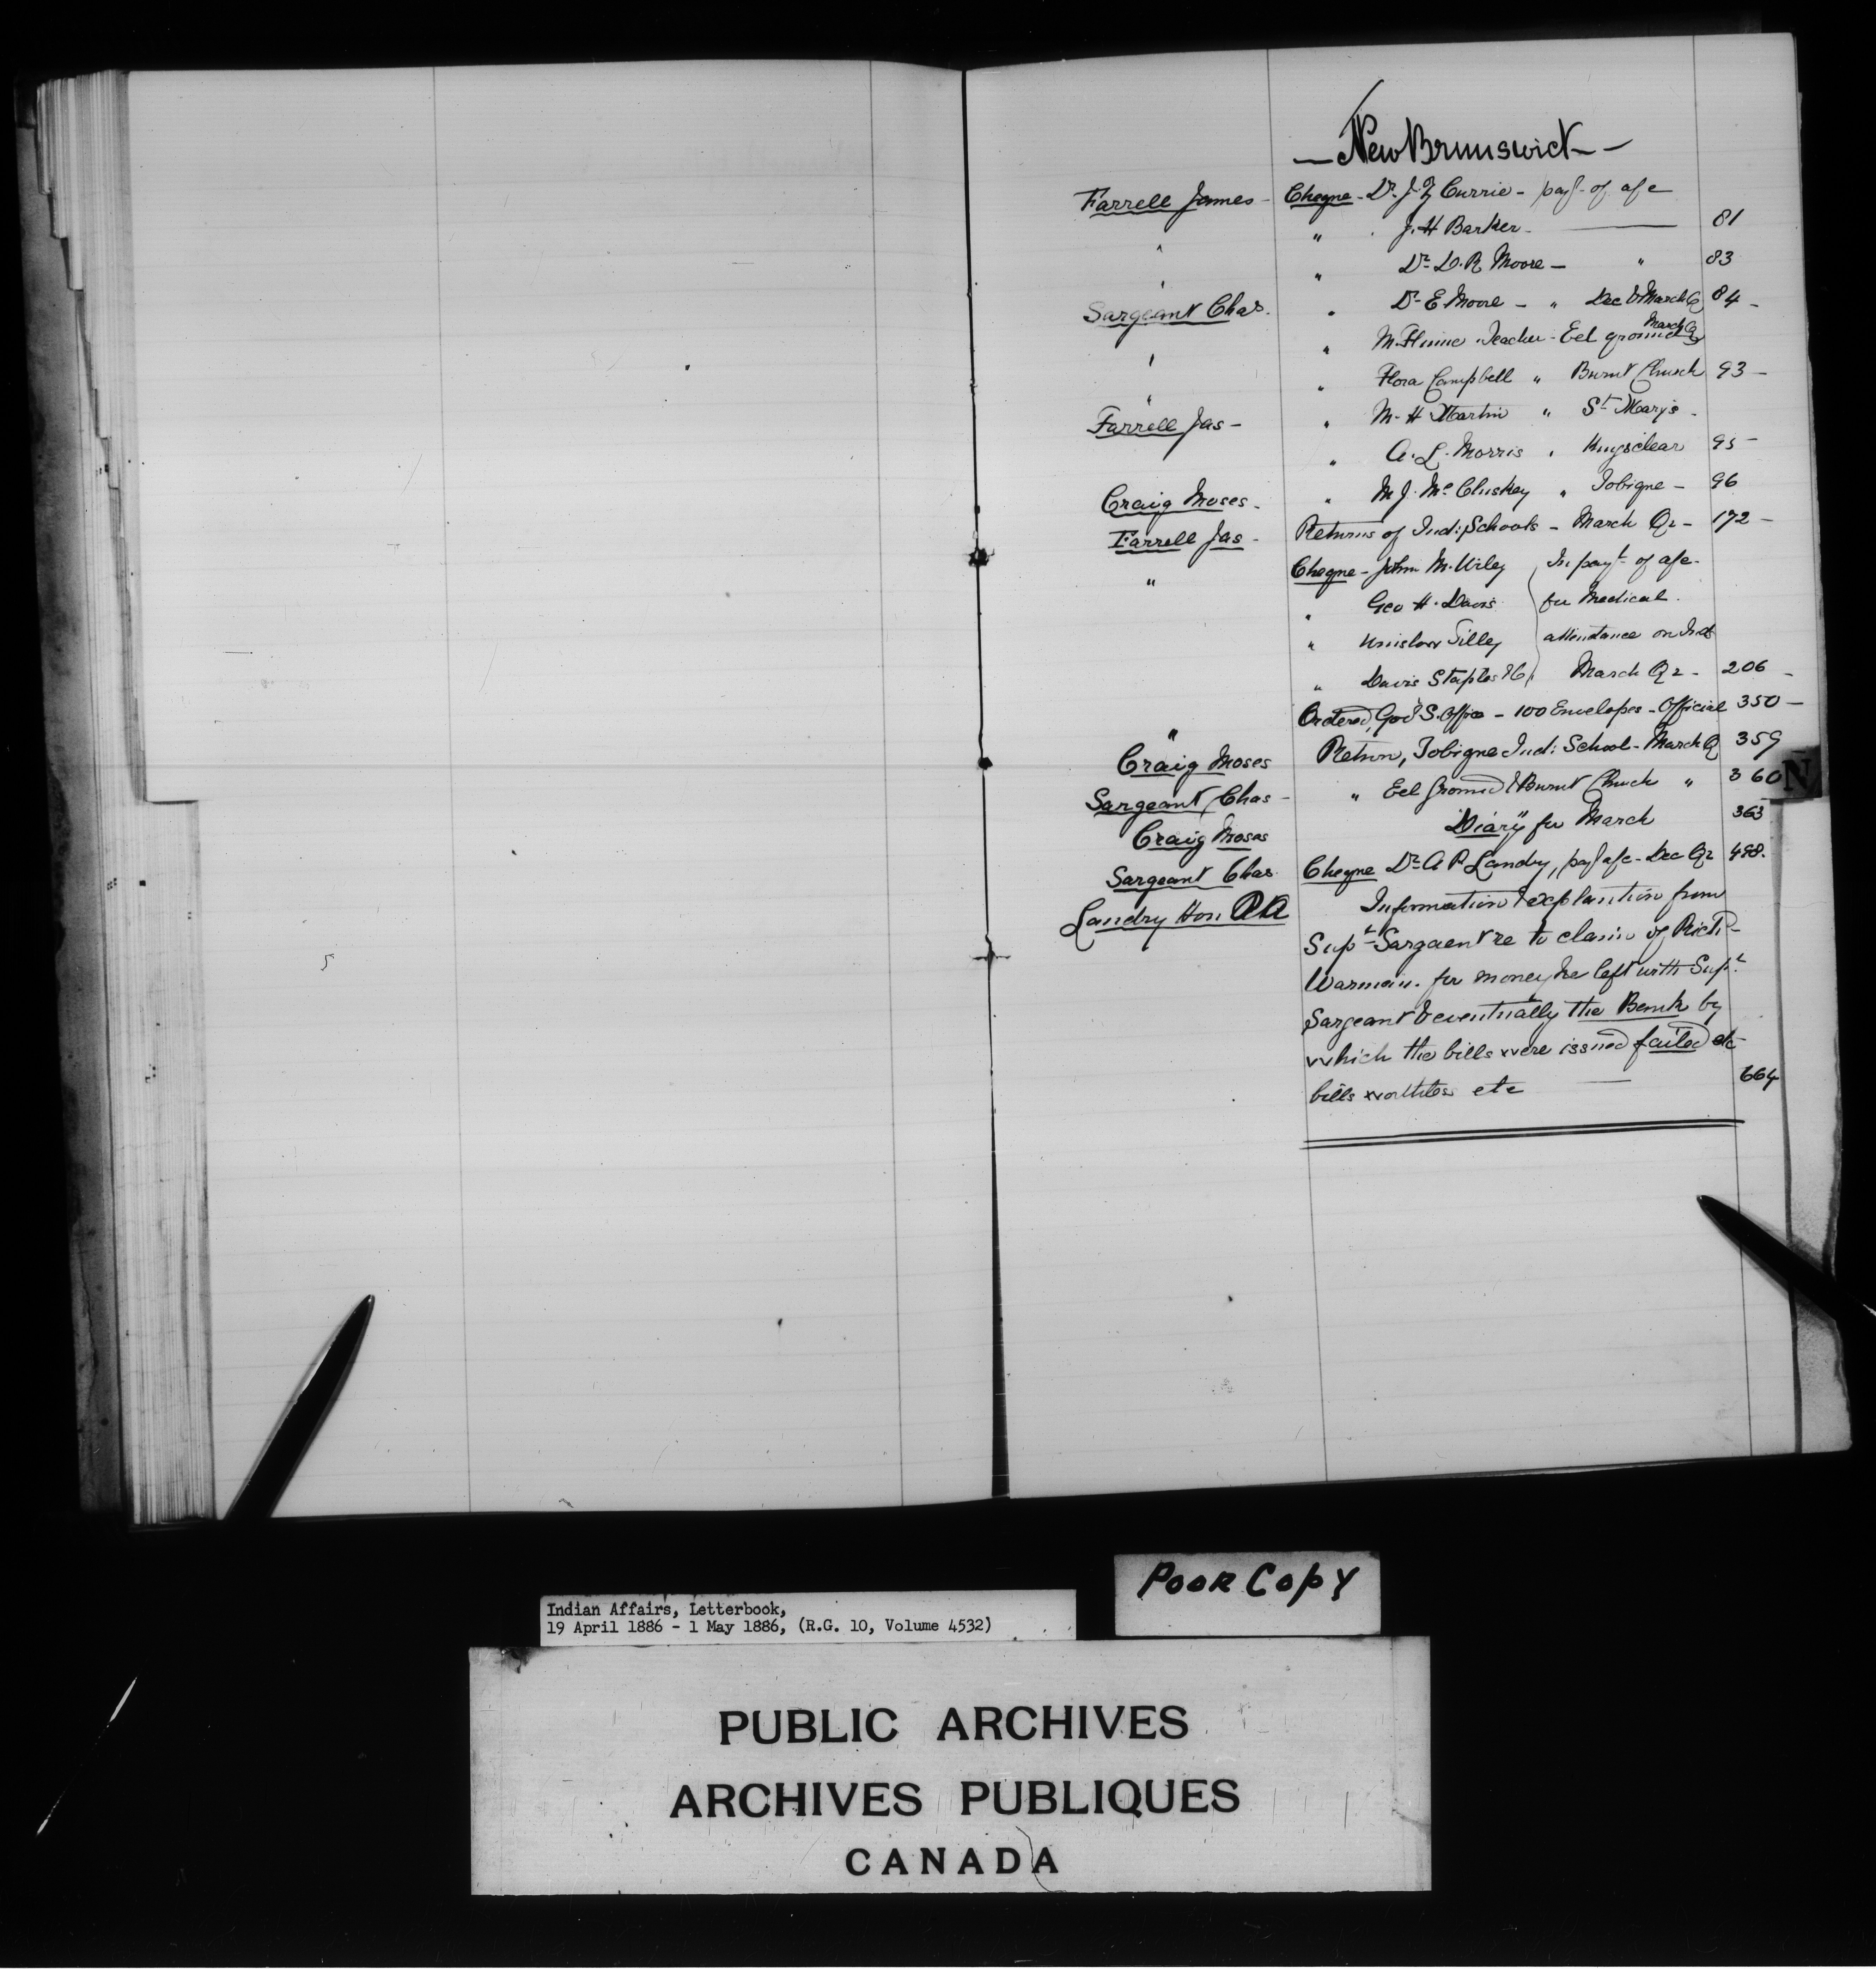 — New Brunswick —
Farrell James - Cheque - Dr. J. Z Currie - payt of a/c
" " J. H Barker - — 81
" " Dr. D. R Moore - " 83
Sargeant Chas. " Dr E Moore - " Dec & March Q 84 -
" " M. Flinne Teacher - Eel ground March Q
" " Flora Campbell " Burnt Church 93 -
Farrell Jas - " M. H Martin " St Mary's -
" A. L. Morris " Kingsclear 95 -
Craig Moses - " M J. Mc Cluskey " Tobique - 96
Farrell Jas - Returns of Ind: Schools - March Qr - 172 -
" Cheque - John M. Wiley In payt of a/c -
" Geo H. Davis for Medical
" Winslow Tilley attendance on Inds
" Davis Staples & Co March Qr - 206 -
" Ordered, Govt S. Office - 100 Envelopes - Official 350 -
Craig Moses Return, Tobique Ind: School - March Q 359
Sargeant Chas - " Eel Ground & Burnt Church " 360
Craig Moses Diary for March 363
Sargeant Chas Cheque Dr A P Landry, payt a/c - Dec Qr 498.
Landry Hon P A Information & explanation from
Supt Sargaent re to claim of Richd
Warmain. for money he left with Supt
Sargeant & eventually the Bank by
which the bills were issued failed etc
bills worthless etc — 664
N
Poor Copy
Indian Affairs, Letterbook,
19 April 1886 - 1 May 1886, (R.G. 10, Volume 4532)
PUBLIC ARCHIVES
ARCHIVES PUBLIQUES
CANADA